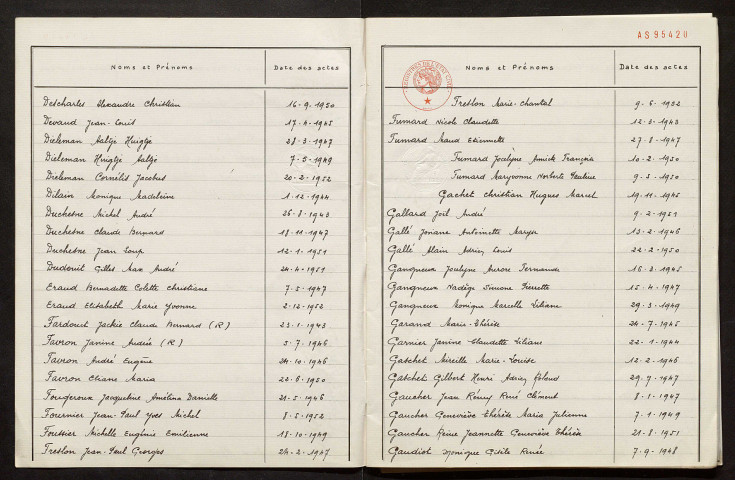 Noms et Prénoms Date des actes
Descharles Alexandre Christian 16-9-1950
Devaud Jean-Louis 17-4-1945
Dieleman Aaltje Huigtje 28-3-1947
Dieleman Huigtje Aaltje 7-5-1949
Dieleman Cornélis Jacobus 20-2-1952
Dilain Monique Madeleine 1-12-1944
Duchesne Michel André 26-8-1943
Duchesne Claude Bernard 18-11-1947
Duchesne Jean Loup 12-1-1951
Dudouit Gilles Max André 24-4-1951
Eraud Bernadette Colette Christiane 7-5-1947
Eraud Elisabeth Marie Yvonne 2-12-1952
Fardouet Jackie Claude Bernard (R) 23-1-1943
Favron Janine Andrée (R) 5-7-1946
Favron André Eugène 24-10-1946
Favron Eliane Maria 22-6-1950
Fougeroux Jacqueline Amélina Danielle 21-5-1946
Fournier Jean-Paul Yves Michel 8-5-1952
Foussier Michelle Eugénie Emilienne 18-10-1949
Freslon Jean-Paul Georges 24-2-1947
AS95420
Noms et Prénoms Date des actes
Freslon Marie-Chantal 9-6-1952
Fumard Nicole Claudette 12-3-1943
Fumard Maud Etiennette 27-8-1947
Fumard Jocelyne Annick Françoise 10-2-1950
Fumard Maryvonne Norberte Pauline 9-5-1950
Gachet Christian Hugues Marcel 19-11-1945
Gallard Joël André 9-2-1951
Gallé Josiane Antoinette Maryse 13-2-1946
Gallé Alain Adrien Louis 22-2-1950
Gangneux Jocelyne Aurore Fernande 16-3-1945
Gangneux Nadège Simone Pierrette 15-4-1947
Gangneux Monique Marcelle Liliane 29-3-1949
Garand Marie-Thérèse 24-7-1945
Garnier Janine Claudette Liliane 22-1-1944
Gatschet Mireille Marie-Louise 12-2-1946
Gatschet Gilbert Henri Adrien Roland 29-7-1947
Gaucher Jean Rémy René Clément 8-1-1947
Gaucher Geneviève Thérèse Maria Julienne 7-1-1949
Gaucher Reine Jeannette Geneviève Thérèse 21-8-1951
Gaudiot Monique Gisèle Renée 7-9-1948